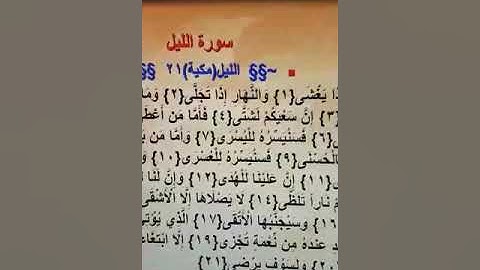 سورة الليل
~§§ الليل(مكية)٢١ §§
ذا يَغْشى{١} وَالنَّهارِ إِذا تَجَلَّى{٢} وَمَا
٣} إِنَّ سَعْيَكُمْ لَشَتَّى{٤} فَأَمَّا مَن أَعْطَى
{٦} فَسَنُيَسِّرُهُ لِلْيُسْرَى{٧} وَأَمَّا مَن بَ
الْحُسْنَى{٩} فَسَنُيَسِّرُهُ لِلْعُسْرَى{١٠} وَ
{١١} إِنَّ عَلَيْنَا لَلْهُدَى{١٢} وَإِنَّ لَنَا
مْ نَاراً تَلَظَّى{١٤} لَا يَصْلَاهَا إِلَّا الْأَشْقَى
١٦} وَسَيُجَنَّبُهَا الْأَتْقَى{١٧} الَّذِي يُؤْتِي
دٍ عِندَهُ مِن نِّعْمَةٍ تُجْزَى{١٩} إِلَّا ابْتِغَاء
٢٠} وَلَسَوْفَ يَرْضَى{٢١}